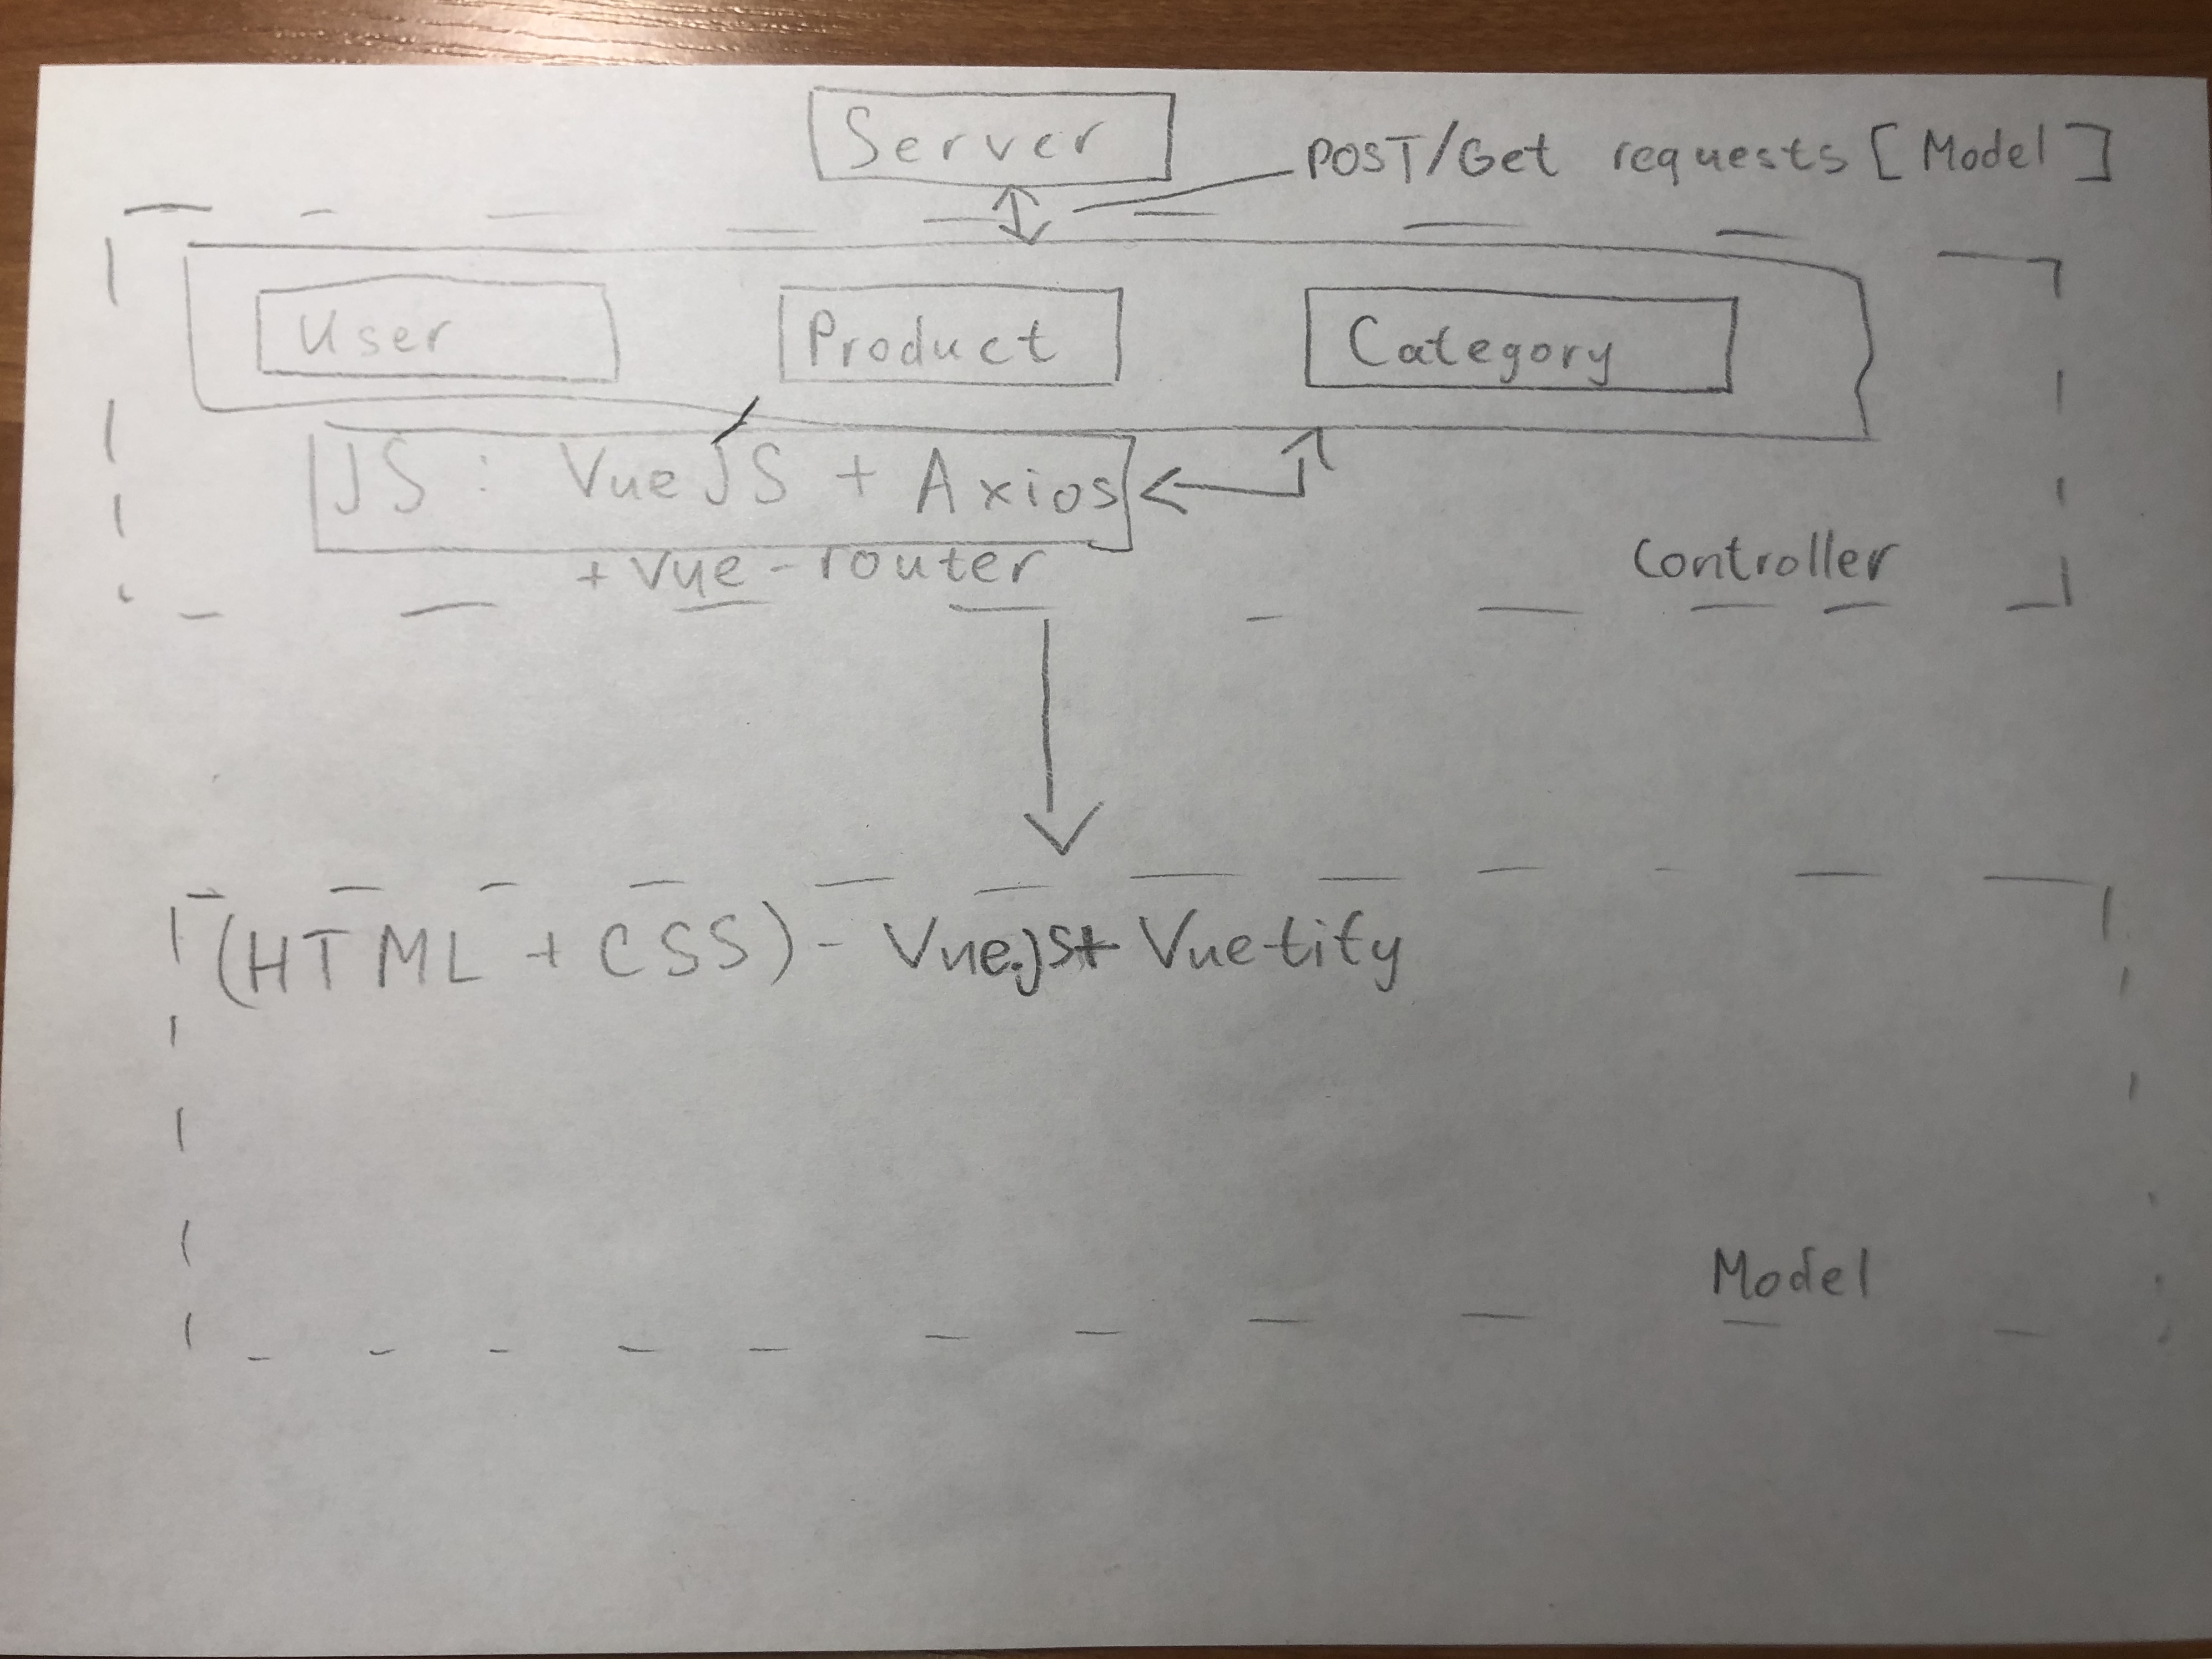 Server
POST/Get requests [Model]
User
Product
Category
JS: VueJS + Axios
+ Vue-router
Controller
(HTML + CSS) - Vue.js+ Vuetify
Model